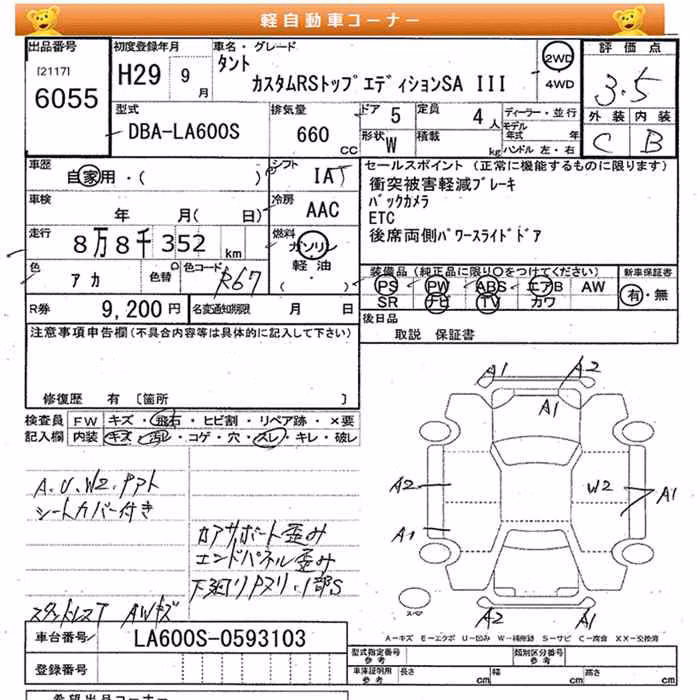 軽自動車コーナー
出品番号 初度登録年月 車名・グレード 評価点
[2117] 6055
H29 9月
タント
カスタムRSトップエディションSA III
2WD
4WD
3.5
外装 内装
C B
型式 排気量 ドア 5 定員 4人 ディーラー・並行
DBA-LA600S 660CC
形状 W 積載 kg
モデル年式 年
ハンドル 左・右
車歴 自家用・( )
シフト IAT
セールスポイント (正常に機能するものに限ります)
衝突被害軽減ブレーキ
バックカメラ
ETC
後席両側パワースライドドア
車検 年 月( 日)
冷房 AAC
走行 8万8千352km
燃料 ガソリン
軽油
( )
色 アカ 色替 色コード R67
装備品 (純正品に限り○をつけてください) 新車保証書
PS PW ABS エアB AW 有・無
SR ナビ TV カワ
R券 9,200円 名変通知期限 月 日
後日品
取説 保証書
注意事項申告欄 (不具合内容等は具体的に記入して下さい)
修復歴 有 [箇所 ]
検査員 FW キズ・飛石・ヒビ割・リペア跡・×要
記入欄 内装 キズ・汚レ・コゲ・穴・スレ・キレ・破レ
A.U.W2.アト
シートカバー付き
コアサポート歪み
エンドパネル歪み
下廻りサビ・1部S
スタッドレス AWキズ
A1 A2
A1
A2 W2 A1
A1
A2 A1
スペア
A-キズ E-エクボ U-凹み W-補修跡 S-サビ C-腐食 XX-交換済
車台番号 LA600S-0593103
登録番号
型式指定番号 参考 類別区分番号 参考
車庫証明用 参考 長さ cm 幅 cm 高さ cm
希望出品コーナー